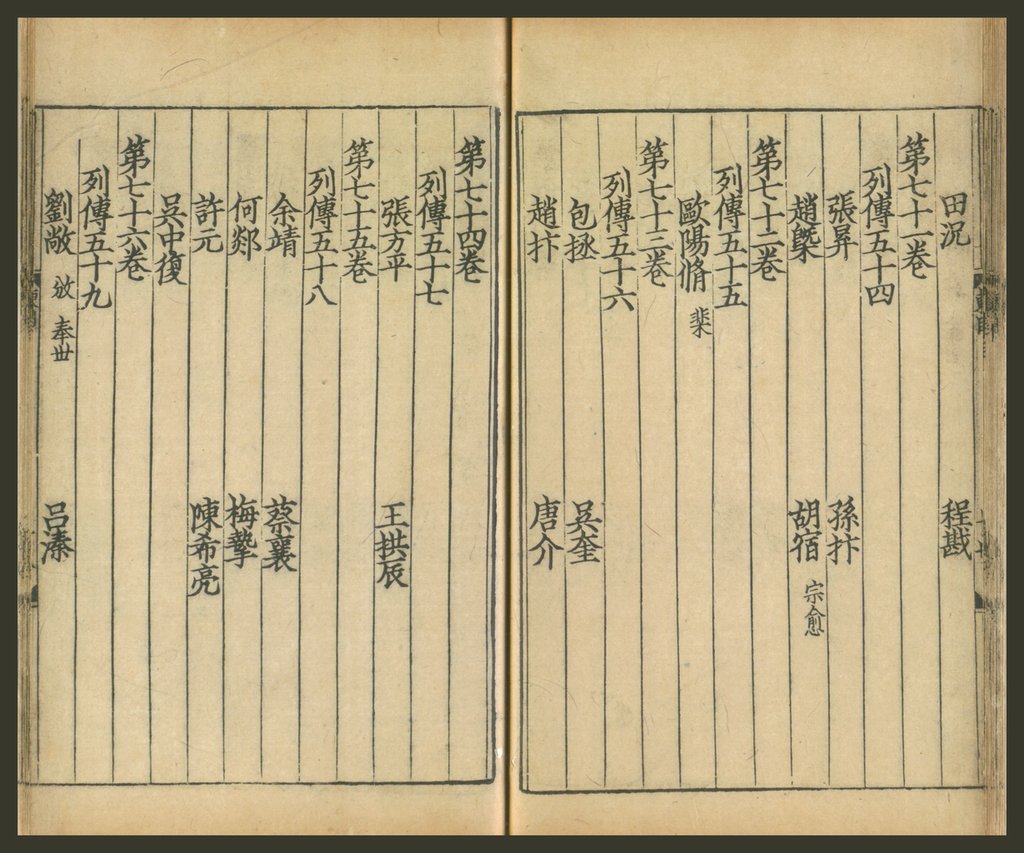 田況　程戡
第七十一卷
列傳五十四
張昪　孫抃
趙槩　胡宿　宗愈
第七十二卷
列傳五十五
歐陽脩　棐
第七十三卷
列傳五十六
包拯　吳奎
趙抃　唐介
第七十四卷
列傳五十七
張方平　王拱辰
第七十五卷
列傳五十八
余靖　蔡襄
何郯　梅摯
許元　陳希亮
吳中復
第七十六卷
列傳五十九
劉敞　攽　奉丗　呂溱